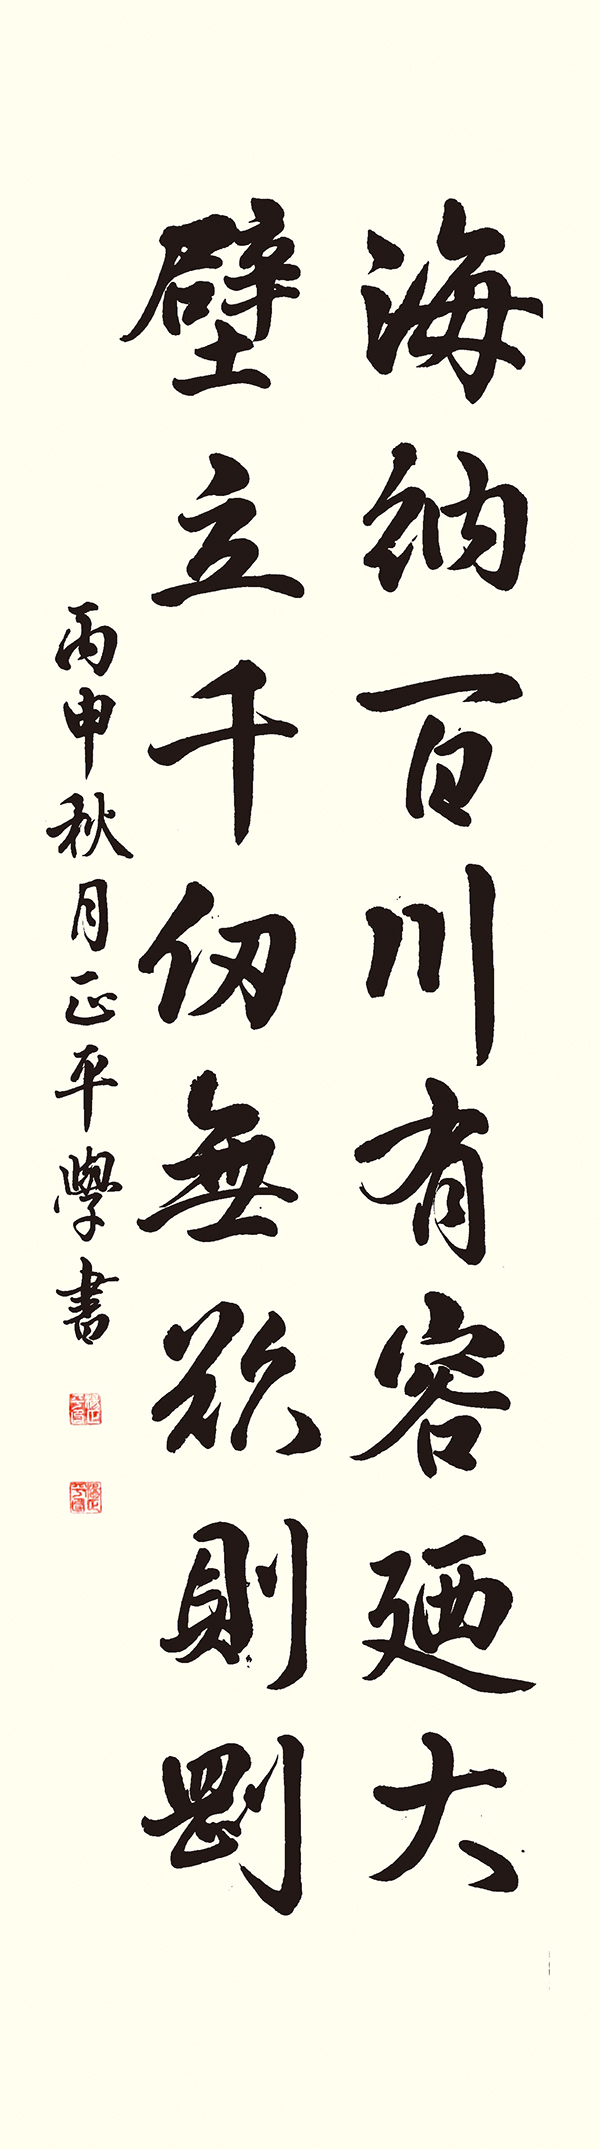 海納百川有容廼大
壁立千仞無欲則剛
丙申秋月正平學書